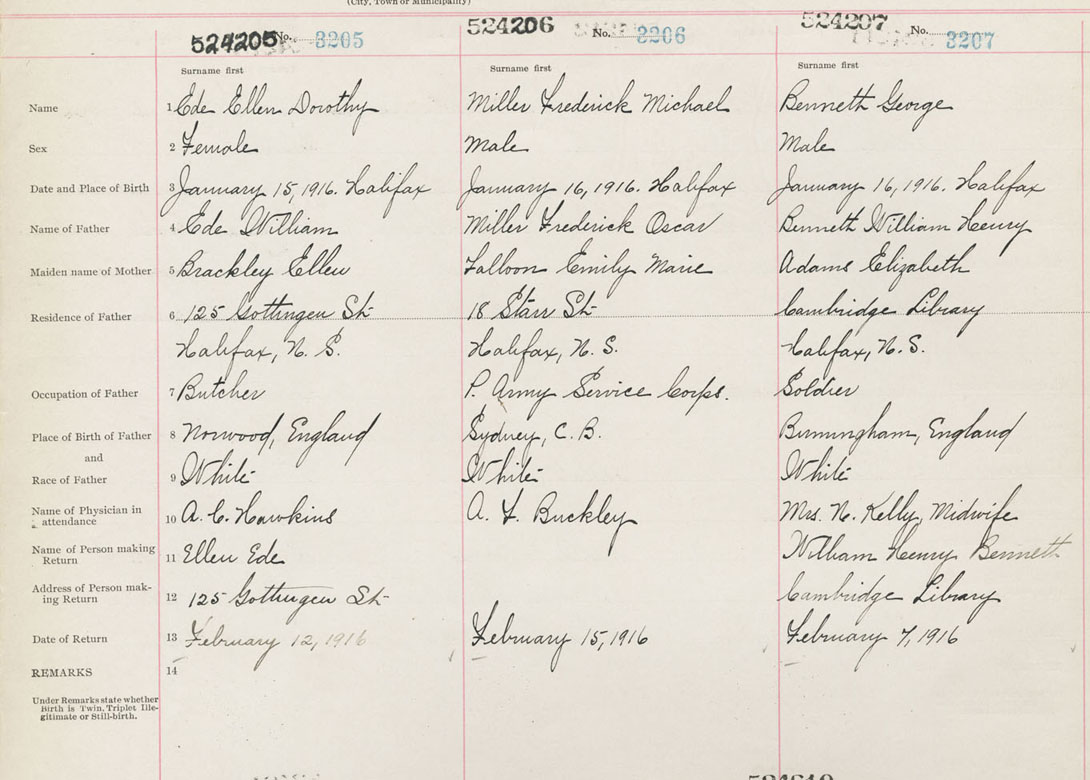 (City, Town or Municipality)
524205 No. 3205
524206 No. 3206
524207 No. 3207
Surname first
Surname first
Surname first
Name 1 Ede Ellen Dorothy
Miller Frederick Michael
Benneth George
Sex 2 Female
Male
Male
Date and Place of Birth 3 January 15, 1916. Halifax
January 16, 1916. Halifax
January 16, 1916. Halifax
Name of Father 4 Ede William
Miller Frederick Oscar
Bennett William Henry
Maiden name of Mother 5 Brackley Ellen
Emily Marie
Adams Elizabeth
Residence of Father 6 125 Gottingen St
18 Starr St
Cambridge Library
Halifax, N. S.
Halifax, N. S.
Halifax, N. S.
Occupation of Father 7 Butcher
P. Army Service Corps.
Soldier
Place of Birth of Father 8 Norwood, England
Sydney, C. B.
Birmingham, England
and
Race of Father 9 White
White
White
Name of Physician in
attendance 10 A. C. Hawkins
A. F. Buckley
Mrs. N. Kelly, Midwife
Name of Person making
Return 11 Ellen Ede
William Henry Bennett
Address of Person mak-
ing Return 12 125 Gottingen St
Cambridge Library
Date of Return 13 February 12, 1916
February 15, 1916
February 7, 1916
REMARKS 14
Under Remarks state whether
Birth is Twin, Triplet Ille-
gitimate or Still-birth.